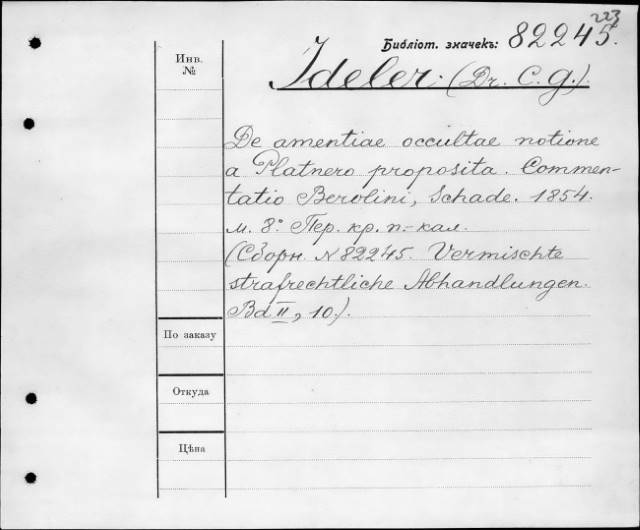 223
Библіот. значекъ: 82245.
Инв.
№
Ideler. (Dr. C. G.).
De amentiae occultae notione
a Platnero proposita. Commen-
tatio Berolini, Schade. 1854.
м. 8° Пер. кр. п.-кал.
(Сборн. № 82245. Vermischte
strafrechtliche Abhandlungen.
Bd II, 10.).
По заказу
Откуда
Цѣна